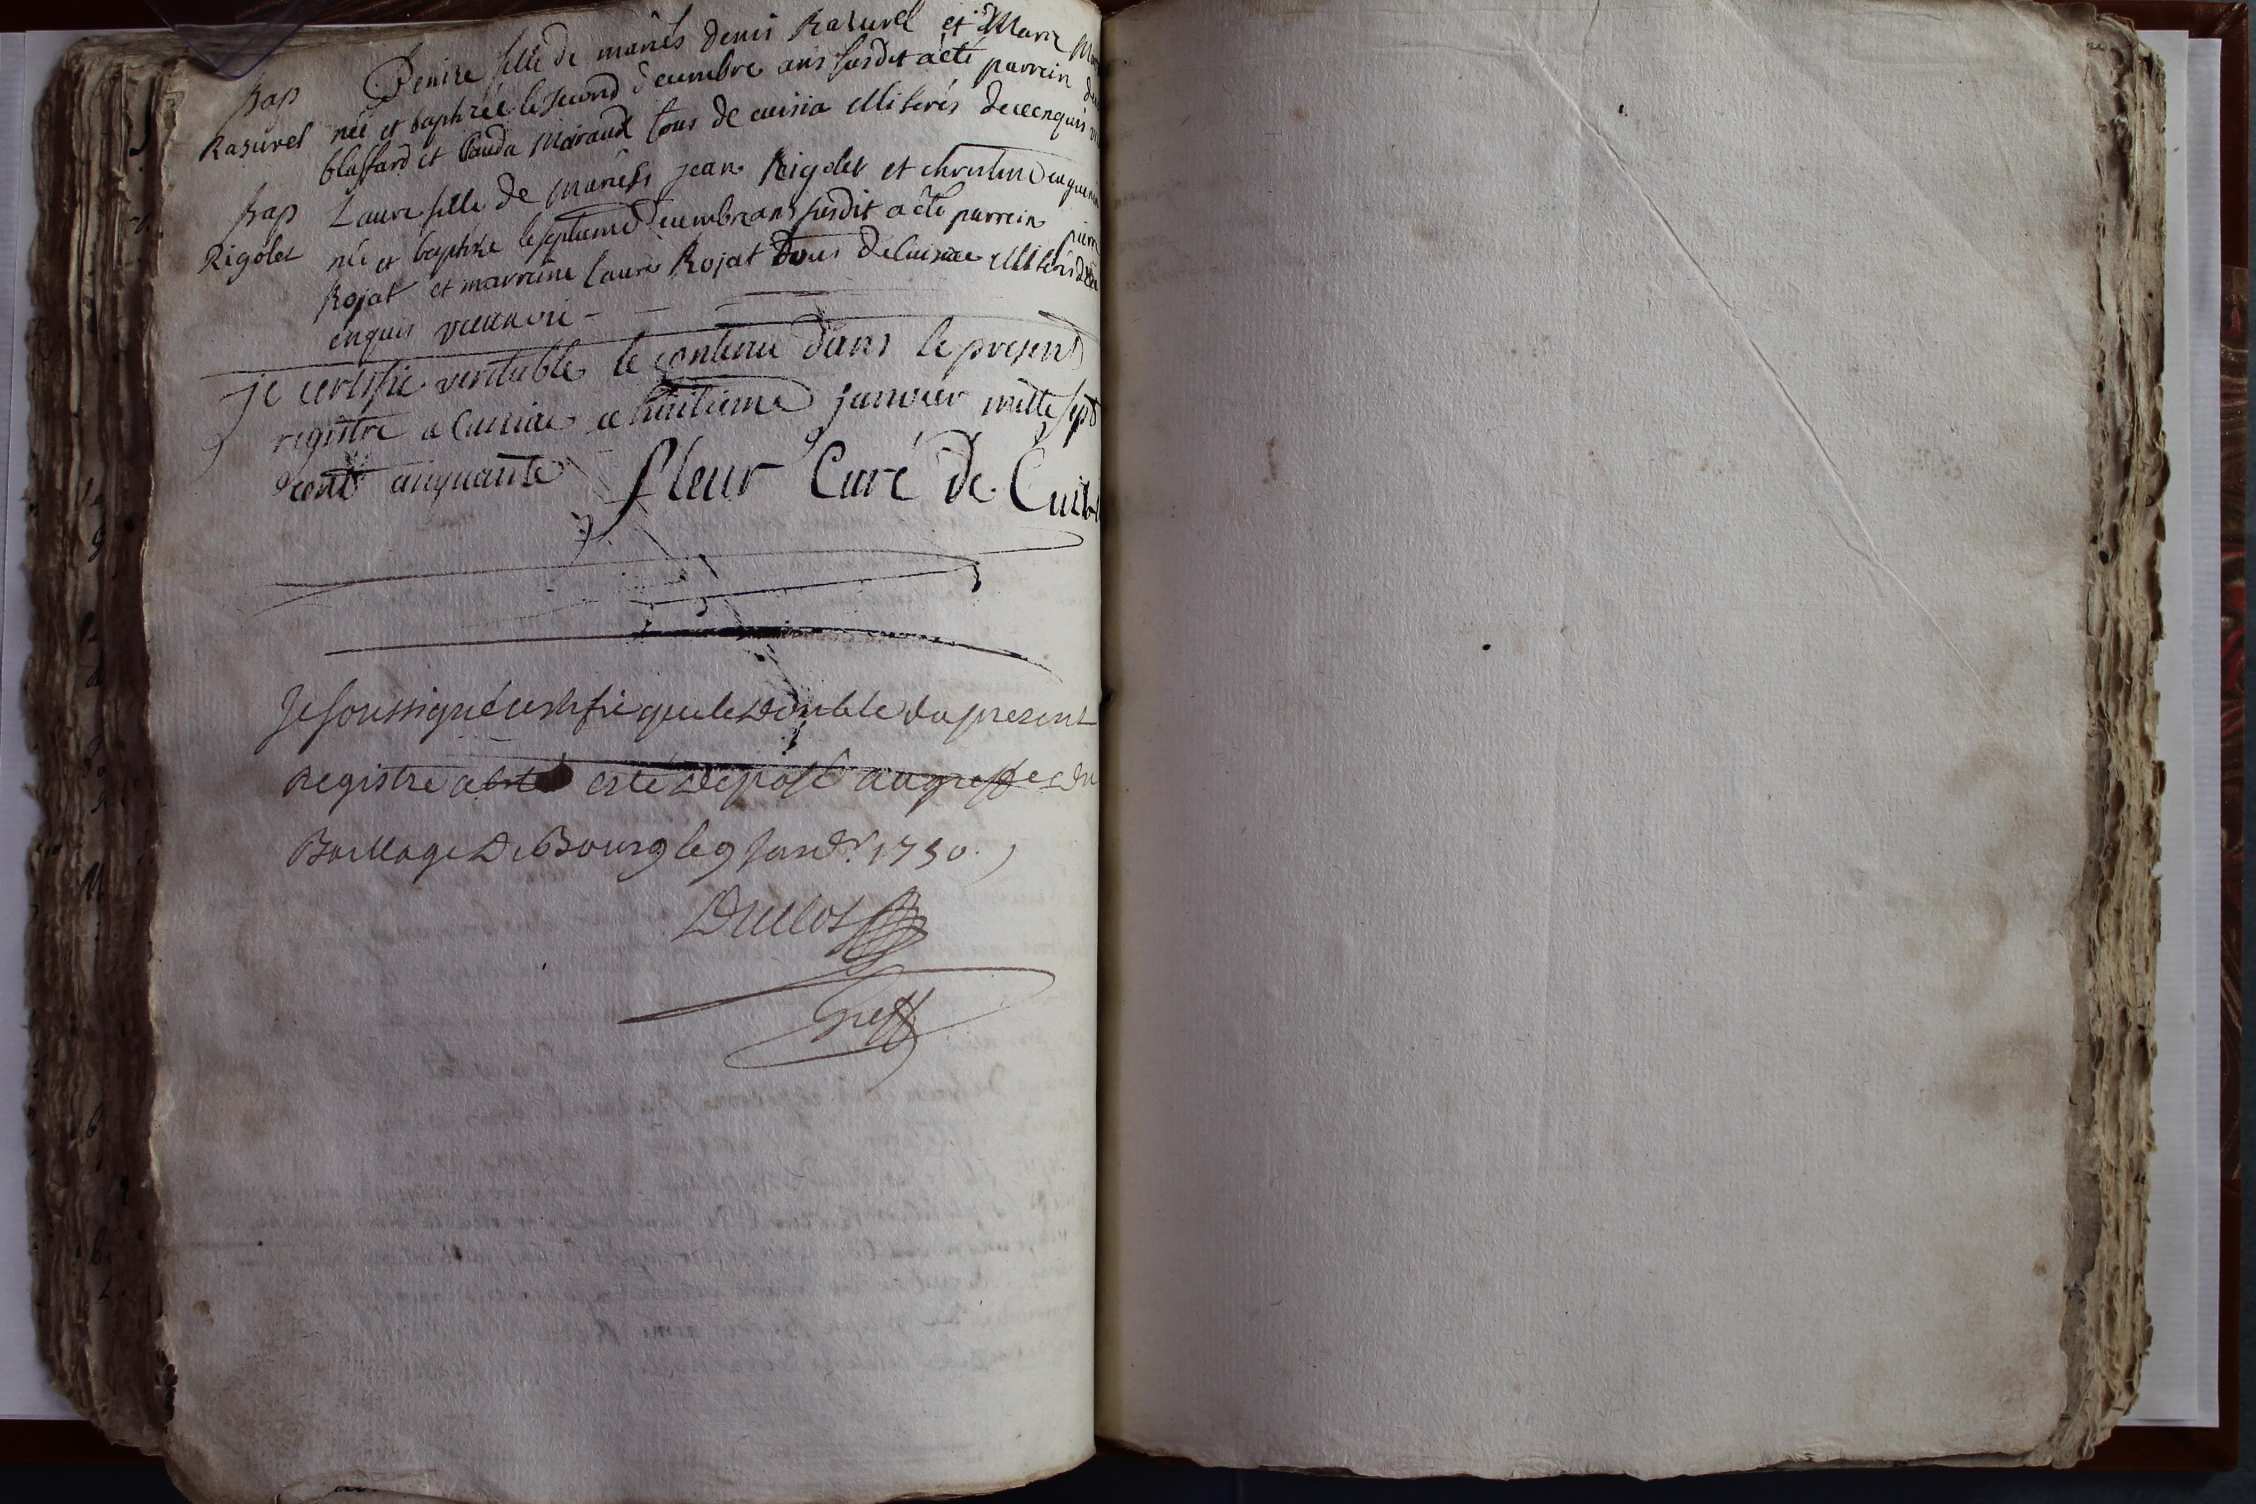 Bap Denize fille de mariés denis Rasurel et Marie
Rasurel née et baptizée le second decembre ans susdit acté parrein
blaffard et Pauda Moiraud tous de cuisia illiterés de ce enquis
Bap Laure fille de mariés jean Rigolet et christine
Rigolet née et baptizée le septieme decembre ans susdit acté parrein pierre
Rojat et marreine laure Rojat tous de Cuisiae illiterés de ce
enquis
je certifie veritable le contenu dans le present
registre a Cuisiae ce huitieme janvier mille sept
cent cinquante fleur Curé de
Je soussigné certifie que le double du present
Registre a esté deposé au greffe du
Baillage De Bourg le 9 Janvr. 1750.
Duclos
Greff